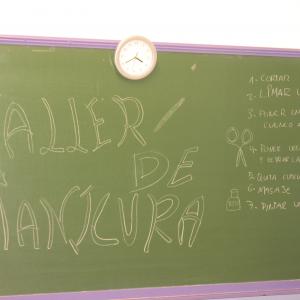 ALLER
DE
MANICURA
1- CORTAR
2. LIMAR U
3. PONER EN
4. PONER
5. QUITA
6- MASAJE
7- PINTAR U